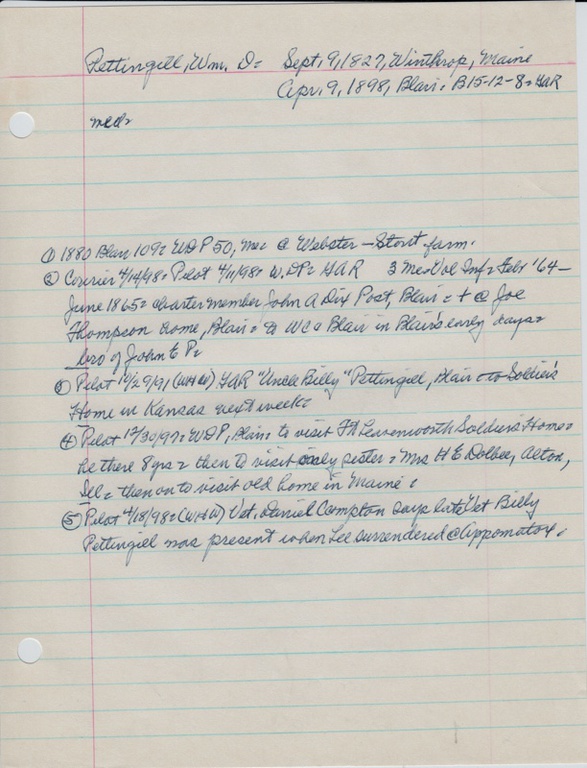 Pettingill, Wm. D= Sept. 9, 1827, Winthrop, Maine
Apr. 9, 1898, Blair= B15-12-8= GAR
med=
① 1880 Blair 109= WDP 50, Me= @ Webster - Stout farm.
② Courier 4/14/98= Pilot 4/11/98= W.DP= GAR 3 Me Vol Inf= Febr '64-
June 1865= charter member John A Dix Post, Blair= + @ Joe
Thompson home, Blair= to WC & Blair in Blair's early days=
bro of John E P=
③ Pilot 12/29/91, (WHW) GAR "Uncle Billy" Pettingill, Blair to Soldier's
Home in Kansas next week=
④ Pilot 12/30/97= WDP, Blair to visit Ft Levenworth Soldiers Home=
he there 8 yrs= then to visit only sister= Mrs H E Dolbee, Alton,
Ill= then on to visit old home in Maine=
⑤ Pilot 4/18/98= (WHW) Vet. Daniel Compton says late Vet Billy
Pettingill was present when Lee surrendered @ Appomatox.